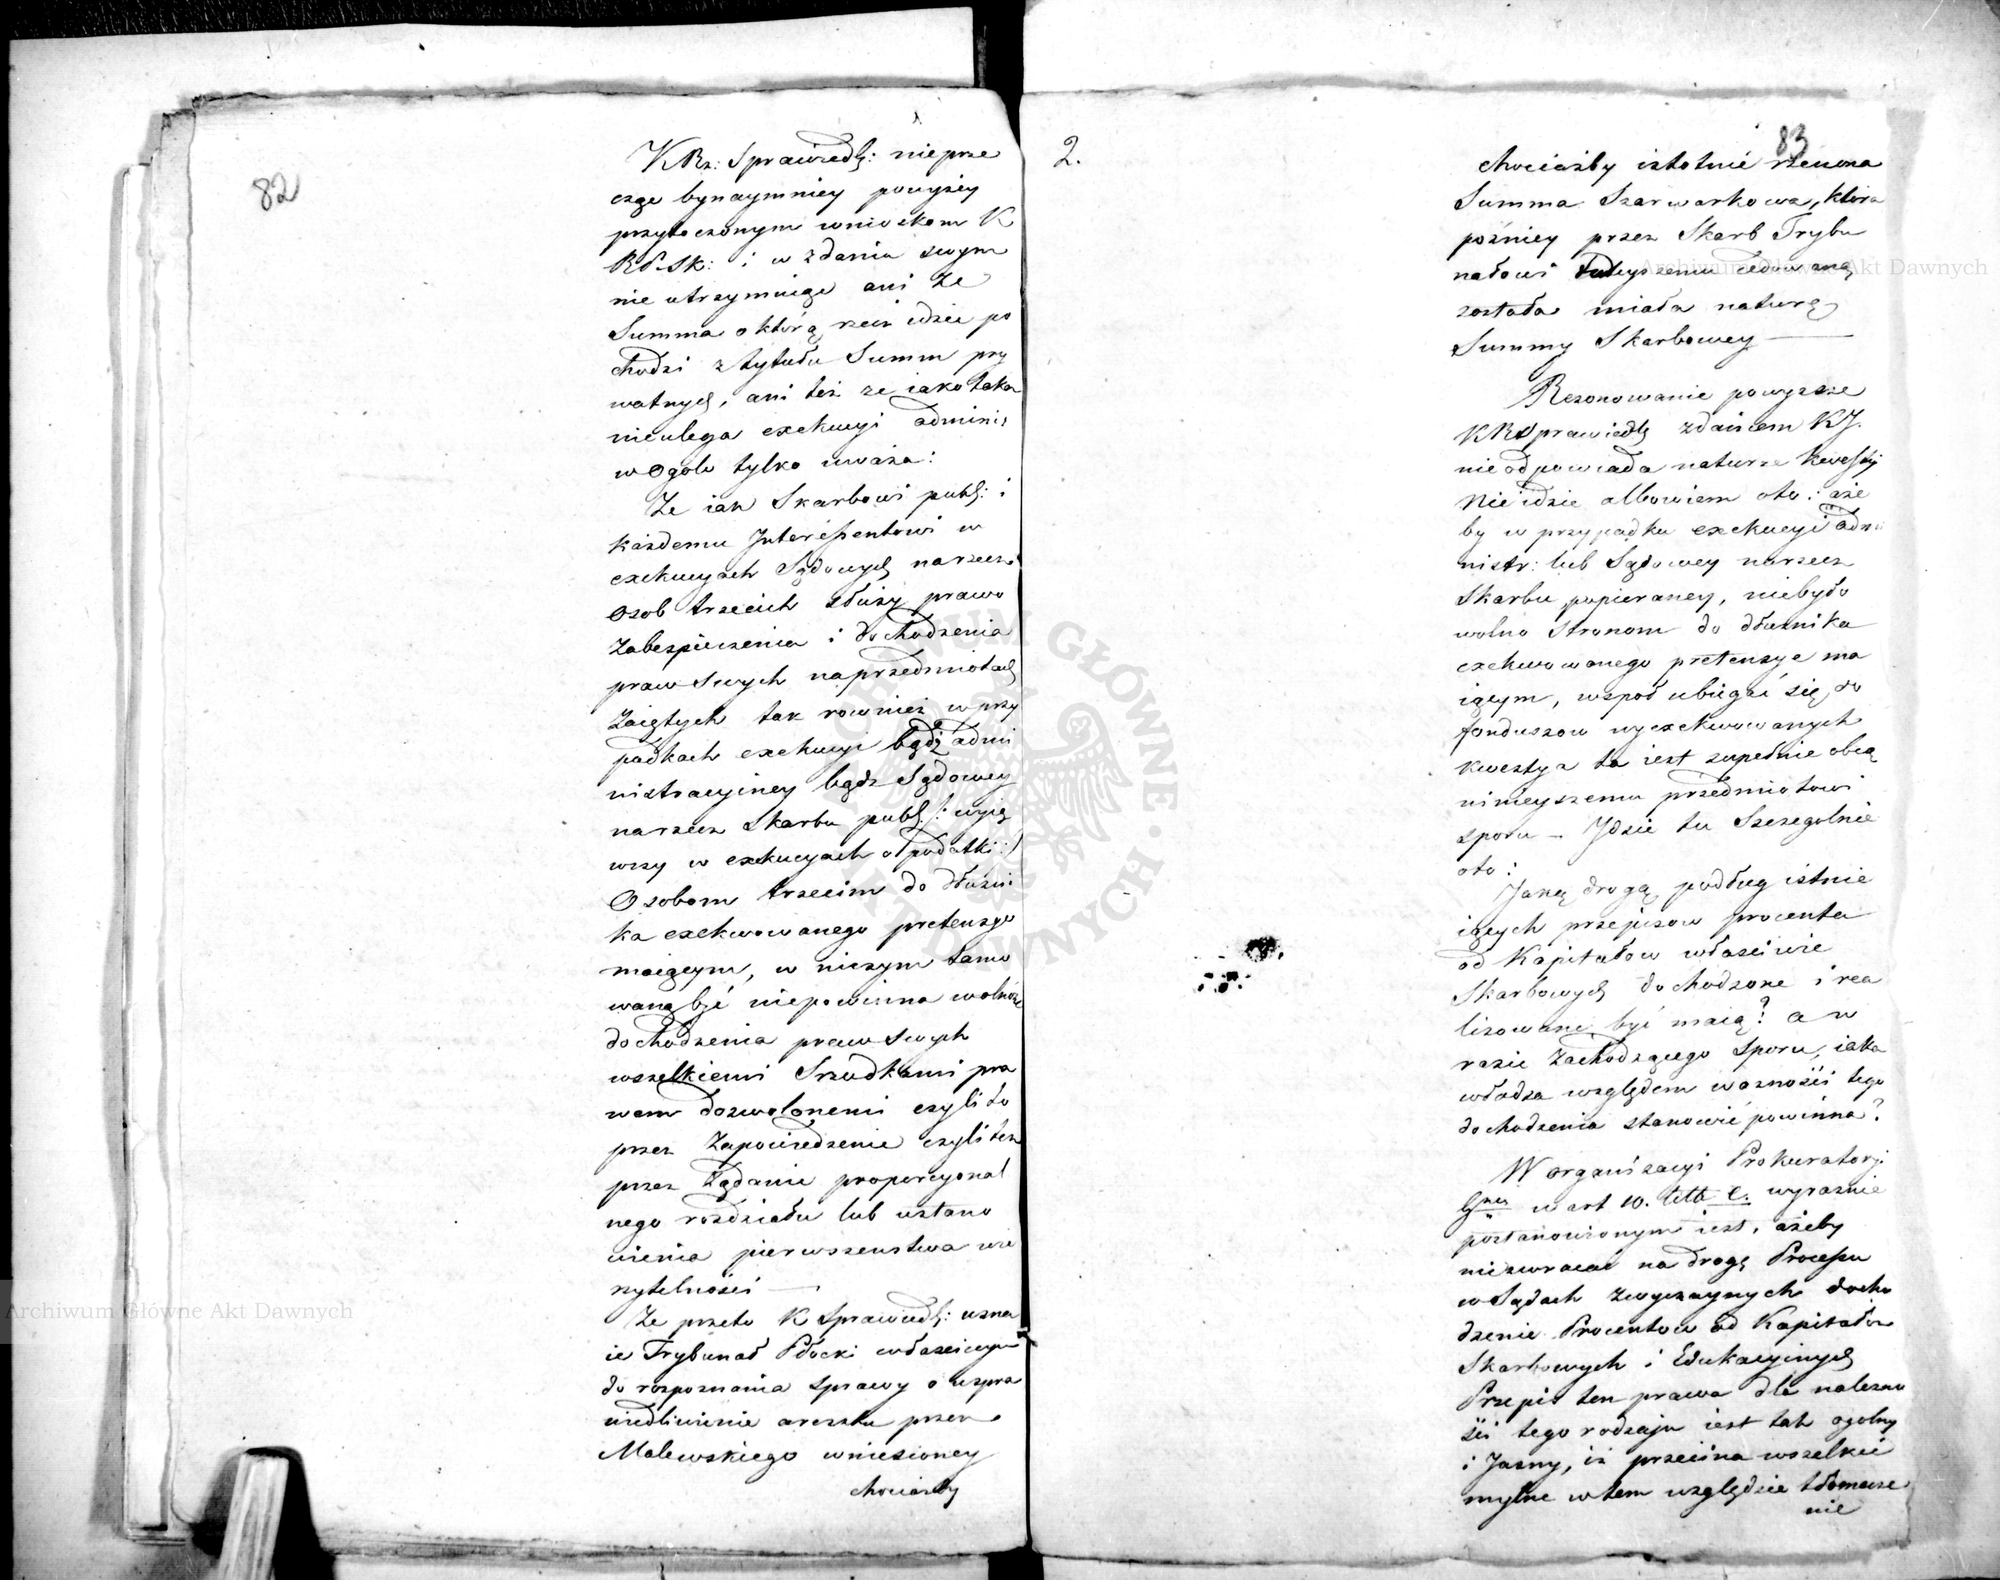 82
KRz: Sprawiedl: nieprze
cząc bynaymniey powyżey
przytoczonym wnioskom K
RPSk: i w zdaniu swym
nie utrzymuiąc ani że
Summa o którą rzecz idzie po
chodzi z tytułu Summ pry
watnych, ani też że iako taka
nieulega exekucyi admini:
w ogóle tylko uważa:
Że iak Skarbowi publ: i
każdemu Interessentowi w
exekucyach Sądowych na rzecz
osob trzecich służy prawo
zabespieczenia i dochodzenia
praw swych na przedmiotach
zaiętych tak rownież w przy
padkach exekucyi bądź admi
nistracyiney bądź Sądowey
na rzecz Skarbu publ: /: wyią
wszy w exekucyach o podatki :/
Osobom trzecim do dłużni
ka exekwowanego pretensye
maiącym, w niczym tamo
waną być niepowinna wolność
dochodzenia praw swych
wszelkiemi Srzodkami pra
wem dozwolonemi czyli to
przez zapowiedzenie czyli też
przez żądanie proporcyonal
nego rozdziału lub ustano
wienia pierwszenstwa wie
rytelności —
Że przeto K Sprawiedl: uzna
ie Trybunał Płocki właściwym
do rozpoznania sprawy o uspra
wiedliwienie aresztu przez
Malewskiego wniesioney
chociażby
2.
83
chociażby istotnie rzeczona
Summa Szarwarkowa, która
pożniey przez Skarb Trybu
nałowi tuteyszemu cedowaną
została miała naturę
Summy Skarbowey —
Rezonowanie powyższe
KRSprawiedl: zdaniem KJ.
nieodpowiada naturze kwestyi
Nie idzie albowiem oto: aże
by w przypadku exekucyi admi
nistr: lub Sądowey na rzecz
Skarbu popieraney, niebyło
wolno stronom do dłużnika
exekwowanego pretensye ma
iącym, wspoł ubiegać się do
funduszow wyexekwowanych
kwestya ta iest zupełnie obcą
ninieyszemu przedmiotowi
sporu — Idzie tu Szczegolnie
oto:
Jaką drogą podług istnie
iących przepisow procenta
od Kapitałow właściwie
Skarbowych dochodzone i rea
lizowane być maią? a w
razie zachodzącego sporu, iaka
władza względem wazności tego
dochodzenia stanowić powinna?
W organizacyi Prokuratoryi
Glney w art 10. litt e. wyraznie
postanowionym iest, ażeby
niezwracać na drogę Processu
w Sądach zwyczaynych docho
dzenie Procentow od Kapitałów
Skarbowych i Edukacyinych
Przepis ten prawa dla należno
ści tego rodzaju iest tak ogolny
i Jasny, iż przecina wszelkie
mylne w tem względzie tłomacze
nie
Archiwum Główne Akt Dawnych
Archiwum Główne Akt Dawnych
ARCHIWUM GŁÓWNE AKT DAWNYCH